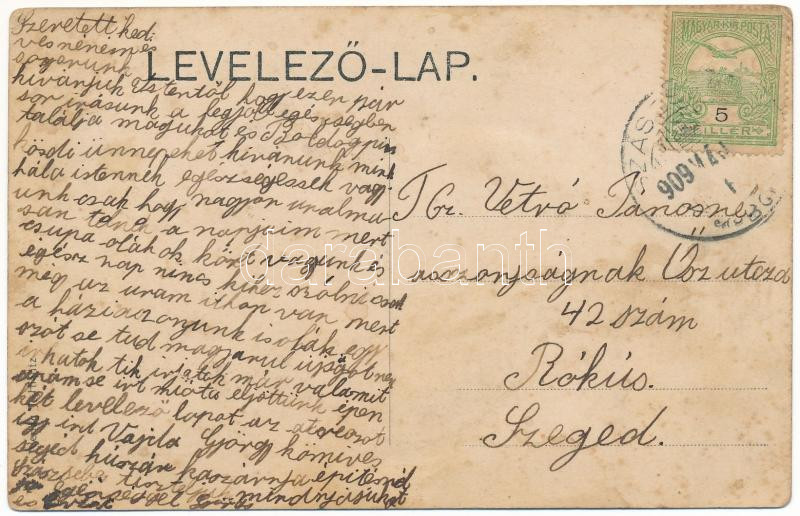 LEVELEZŐ-LAP.
MAGYAR KIR. POSTA
5
FILLER
909
Szeretett ked
ves néném és
sogorunk
kivánjuk Istentől hogy ezen pár
sor irásunk a legjobb egészségben
találja magukat és Boldog pün
kösdi ünnepeket kivánunk mink
hála istennek egészségessek vagy
unk csak hogy nagyon unalma
san telnek a napjaim mert
csupa oláhok közt vagyunk és
egész nap nincs kihez szólni csak
még az uram itthop van mert
a háziaszonyunk is oláh egy
szót se tud magyarul ujságot nem
irhatok tik irjatok már valamit
mióta eljöttünk épen
két levelező lapot az
igy ird Vajda György kőmives
segéd huszár kaszárnya építésnél
mindnyájukat
Tgr. Vetró Jánosné
asszonyságnak Ősz utcza
42 szám
Rókus.
Szeged.
darabanth